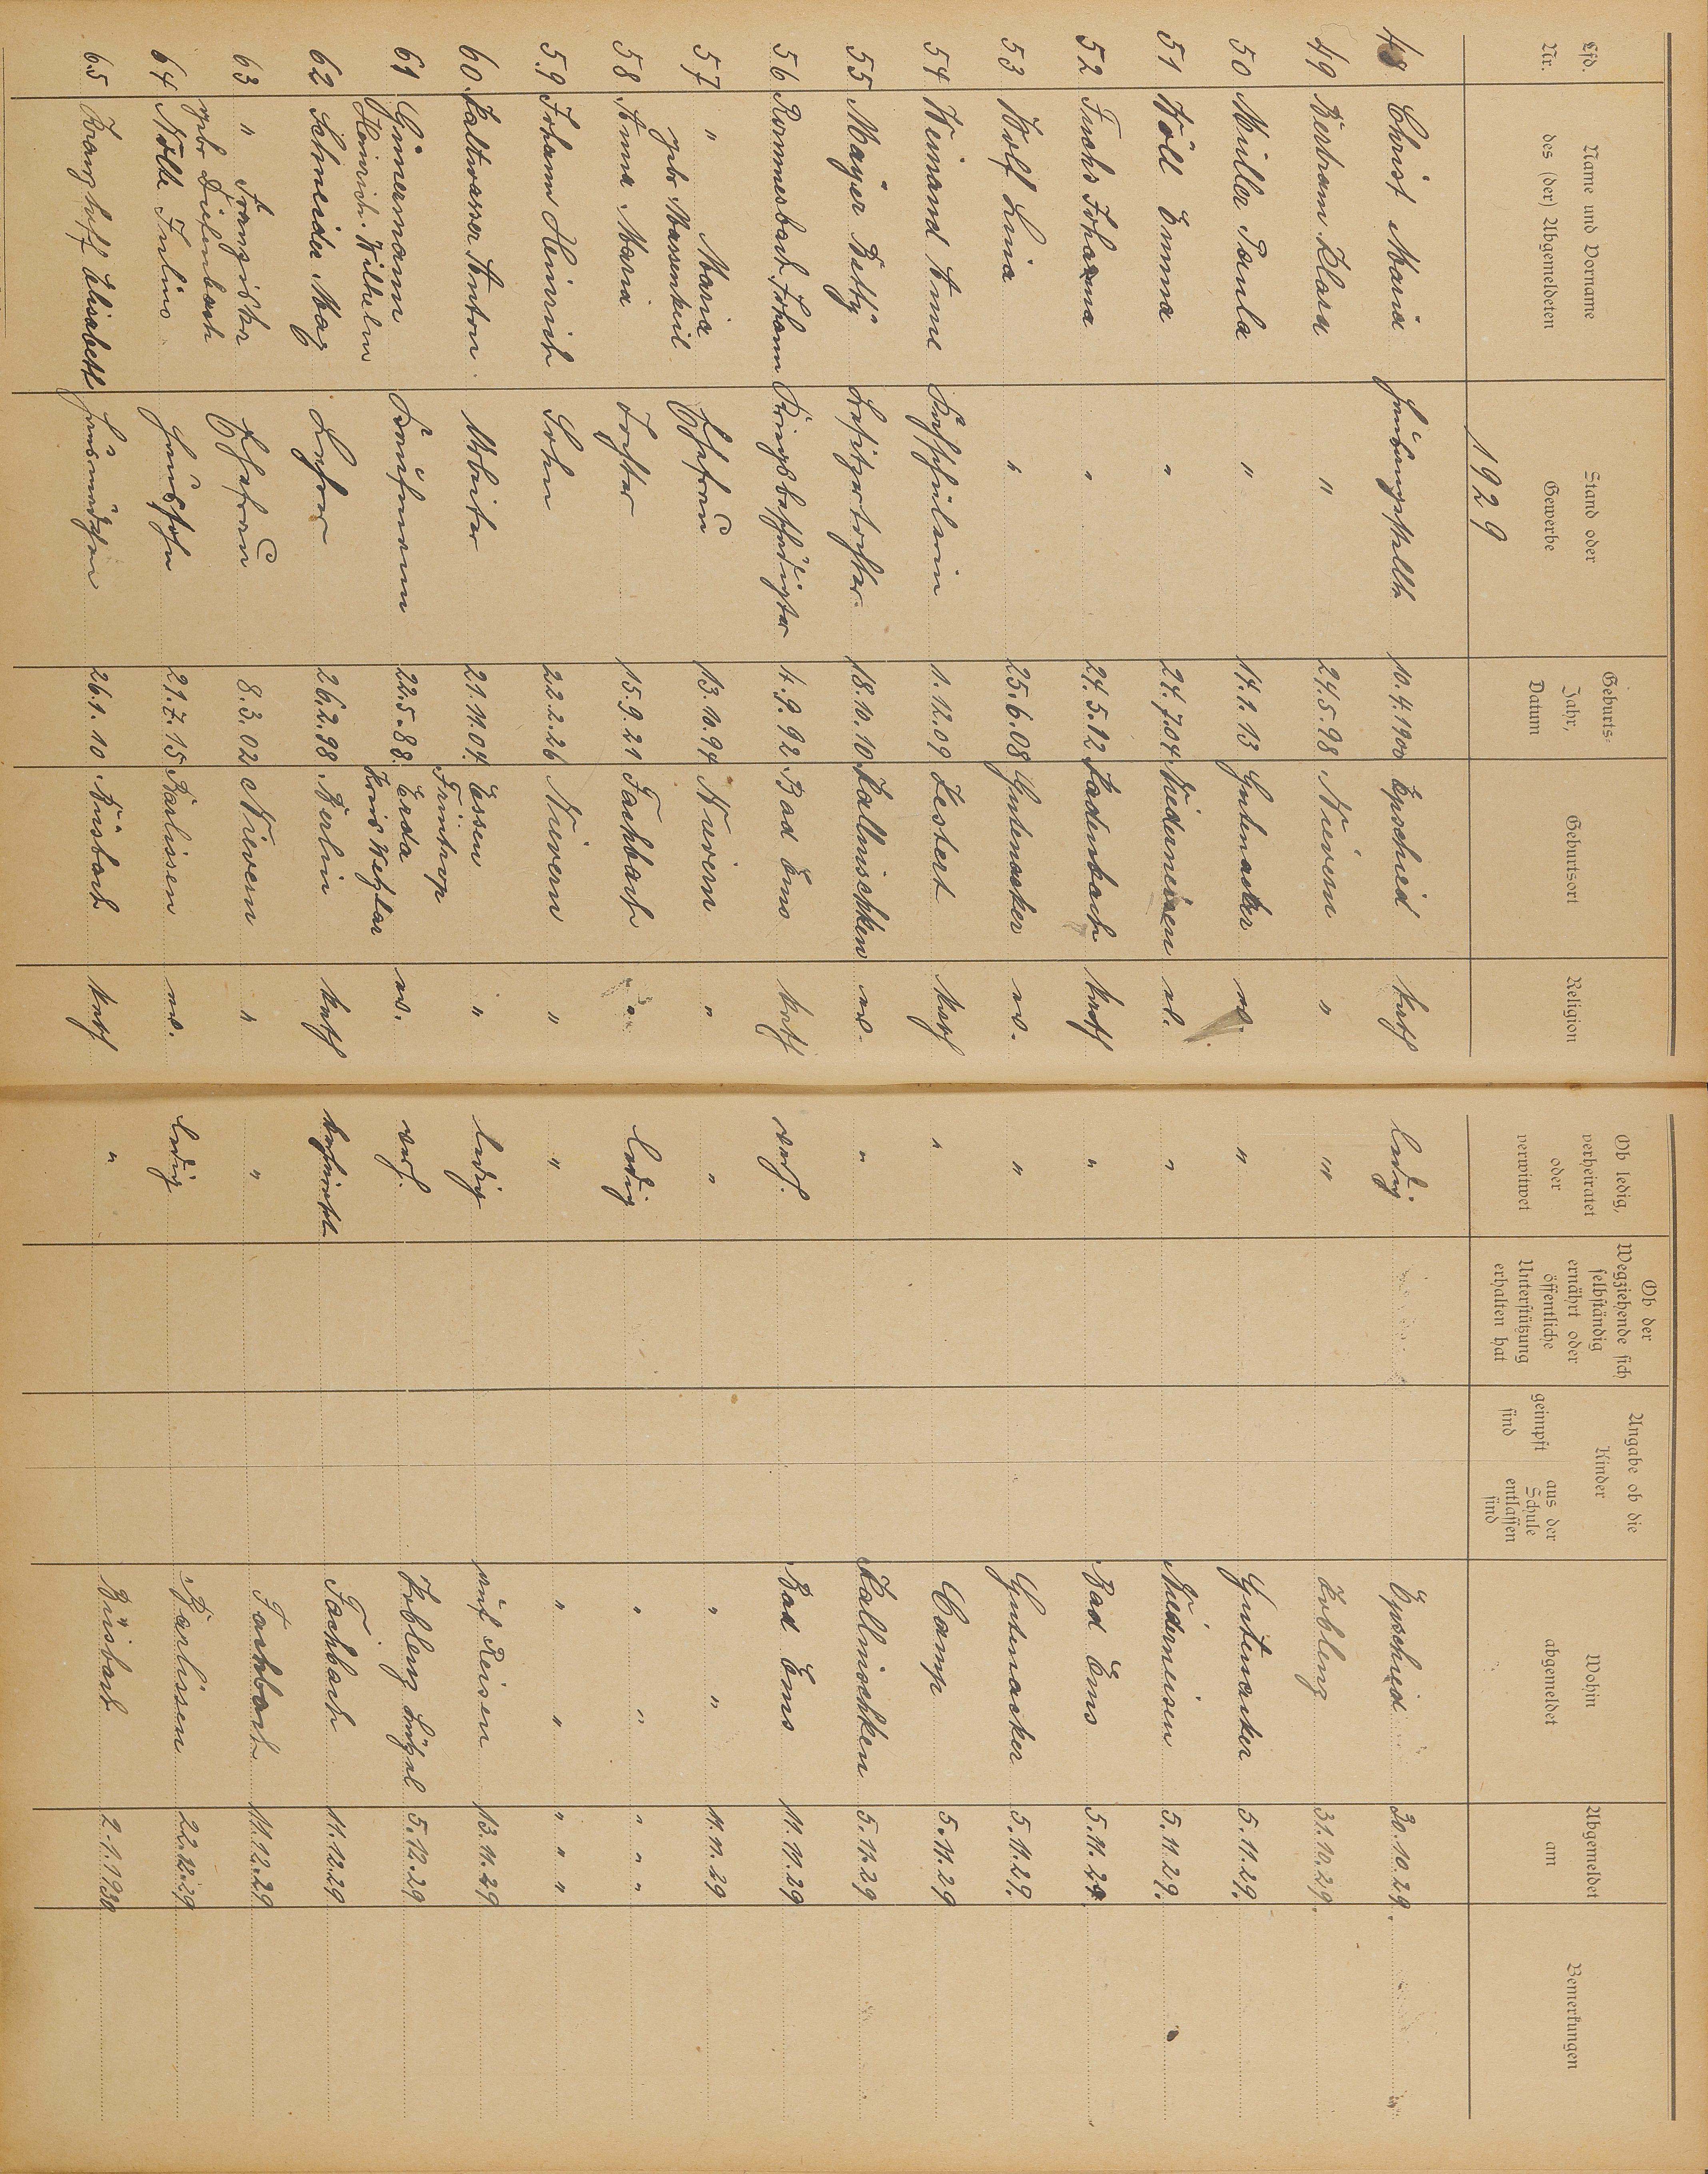 Lfd. Nr. Name und Vorname des (der) Abgemeldeten Stand oder Gewerbe Geburts- Jahr, Datum Geburtsort Religion Ob ledig, verheiratet oder verwitwet Ob der Wegziehende sich selbständig ernährt oder öffentliche Unterstützung erhalten hat Angabe ob die Kinder geimpft sind aus der Schule entlassen sind Wohin abgemeldet Abgemeldet am Bemerkungen
1929
48 Christ Maria Hausangestellte 10.4.1900 Epschied kath ledig Epschied 30.10.29.
49 Bertram Klara " 24.5.98 Nievern " " Koblenz 31.10.29.
50 Müller Paula " 14.1.13 Gutenacker ev. " Gutenacker 5.11.29.
51 Nöll Emma " 24.7.04 Niederneisen ev. " Niederneisen 5.11.29.
52 Fuchs Johanna " 24.5.12 kath " Bad Ems 5.11.29.
53 Wolf Lina " 25.6.08 Gutenacker ev. " Gutenacker 5.11.29.
54 Weinand Anne 1.12.09 Lestert kath " Camp 5.11.29
55 Mayer Betty Besitzertochter 18.10.10 Kallnischken ev. " Kallnischken 5.11.29
56 Rommesbach Johann Kriegsbeschädigter 4.9.92 Bad Ems kath verh. Bad Ems 11.11.29
57 " Maria Ehefrau 13.10.94 Nievern " " " " 11.11.29
geb. Massenkeil
58 Anna Maria Tochter 15.9.21 Fachbach " ledig " " " " "
59 Johann Heinrich Sohn 22.2.26 Nievern " " " " " " "
60 Kaltwasser Anton Arbeiter 21.11.04. Essen " ledig auf Reisen 13.11.29
Frintrop
61 Gimermann Kaufmann 22.5.88. Erda ev. verh. Koblenz Lützel 5.12.29
Heinrich Wilhelm Kreis Wetzlar
62 Schneider Mag Lehrer 26.2.98 Berlin kath Fachbach 11.12.29
63 " Franziska Ehefrau 8.3.02 Nievern " " Fachbach 11.12.29
geb. Diefenbach
64 Nölke Julius Haussohn 21.7.15 Barlissen ev. ledig Barlissen 22.12.29
65 Elisabeth Hausmädchen 26.1.10 kath " 2.1.1930